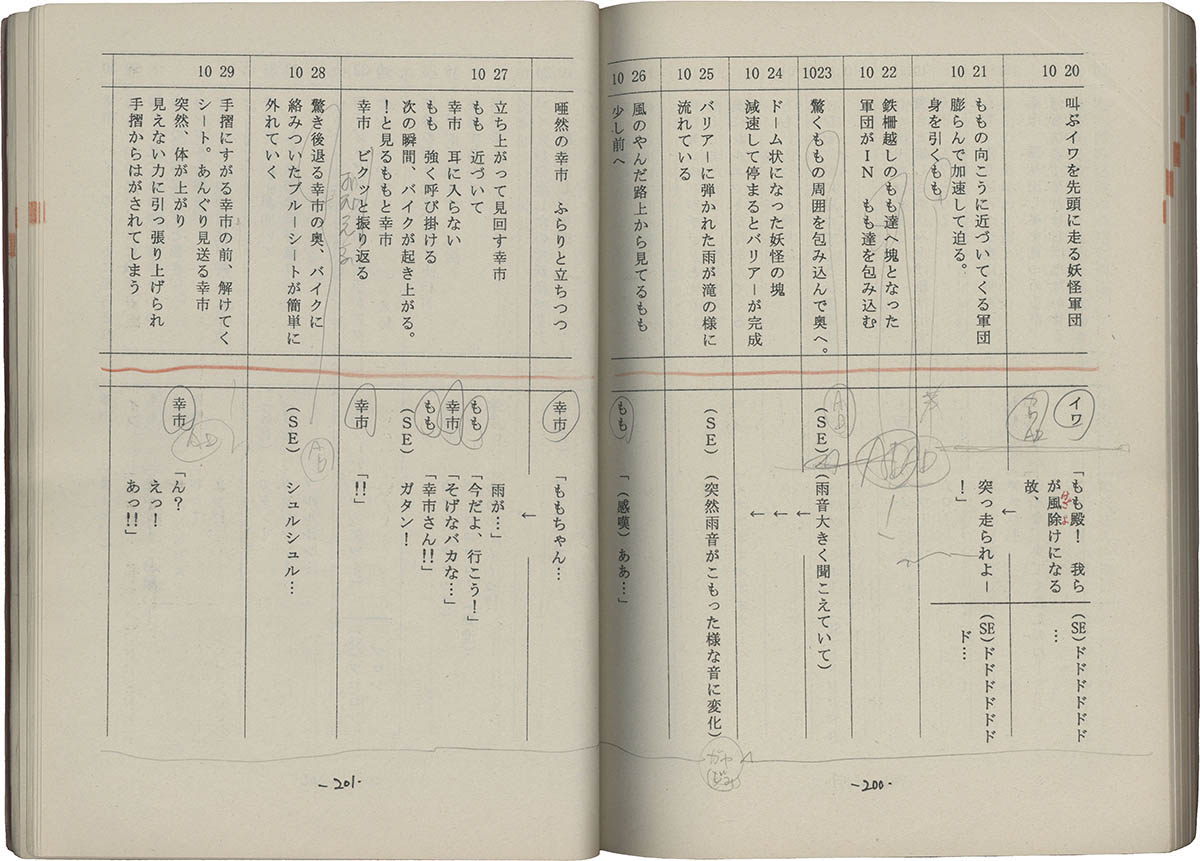 10 20
叫ぶイワを先頭に走る妖怪軍団
イワ
「もも殿！ 我ら
が風除けになる
故、
(SE)ドドドドドド
…
10 21
ももの向こうに近づいてくる軍団
膨らんで加速して迫る。
身を引くもも
←
突っ走られよー
！」
(SE)ドドドドドドド
ド…
10 22
鉄柵越しのもも達へ塊となった
軍団がＩＮ もも達を包み込む
1023
驚くももの周囲を包み込んで奥へ。
(ＳＥ)
(雨音大きく聞こえていて)
10 24
ドーム状になった妖怪の塊
減速して停まるとバリアーが完成
←
←
←
10 25
バリアーに弾かれた雨が滝の様に
流れている
(ＳＥ)
(突然雨音がこもった様な音に変化)
10 26
風のやんだ路上から見てるもも
少し前へ
もも
「(感嘆)ああ…」
-200-
唖然の幸市 ふらりと立ちつつ
幸市
「ももちゃん…
←
10 27
立ち上がって見回す幸市
もも 近づいて
幸市 耳に入らない
もも 強く呼び掛ける
次の瞬間、バイクが起き上がる。
！と見るももと幸市
幸市 ビクッと振り返る
雨が…」
もも
「今だよ、行こう！」
幸市
「そげなバカな…」
もも
「幸市さん!!」
(ＳＥ)
ガタン！
幸市
「!!」
10 28
驚き後退る幸市の奥、バイクに
絡みついたブルーシートが簡単に
外れていく
(ＳＥ)
シュルシュル…
10 29
手摺にすがる幸市の前、解けてく
シート。あんぐり見送る幸市
突然、体が上がり
見えない力に引っ張り上げられ
手摺からはがされてしまう
幸市
「ん？
えっ！
あっ!!」
-201-